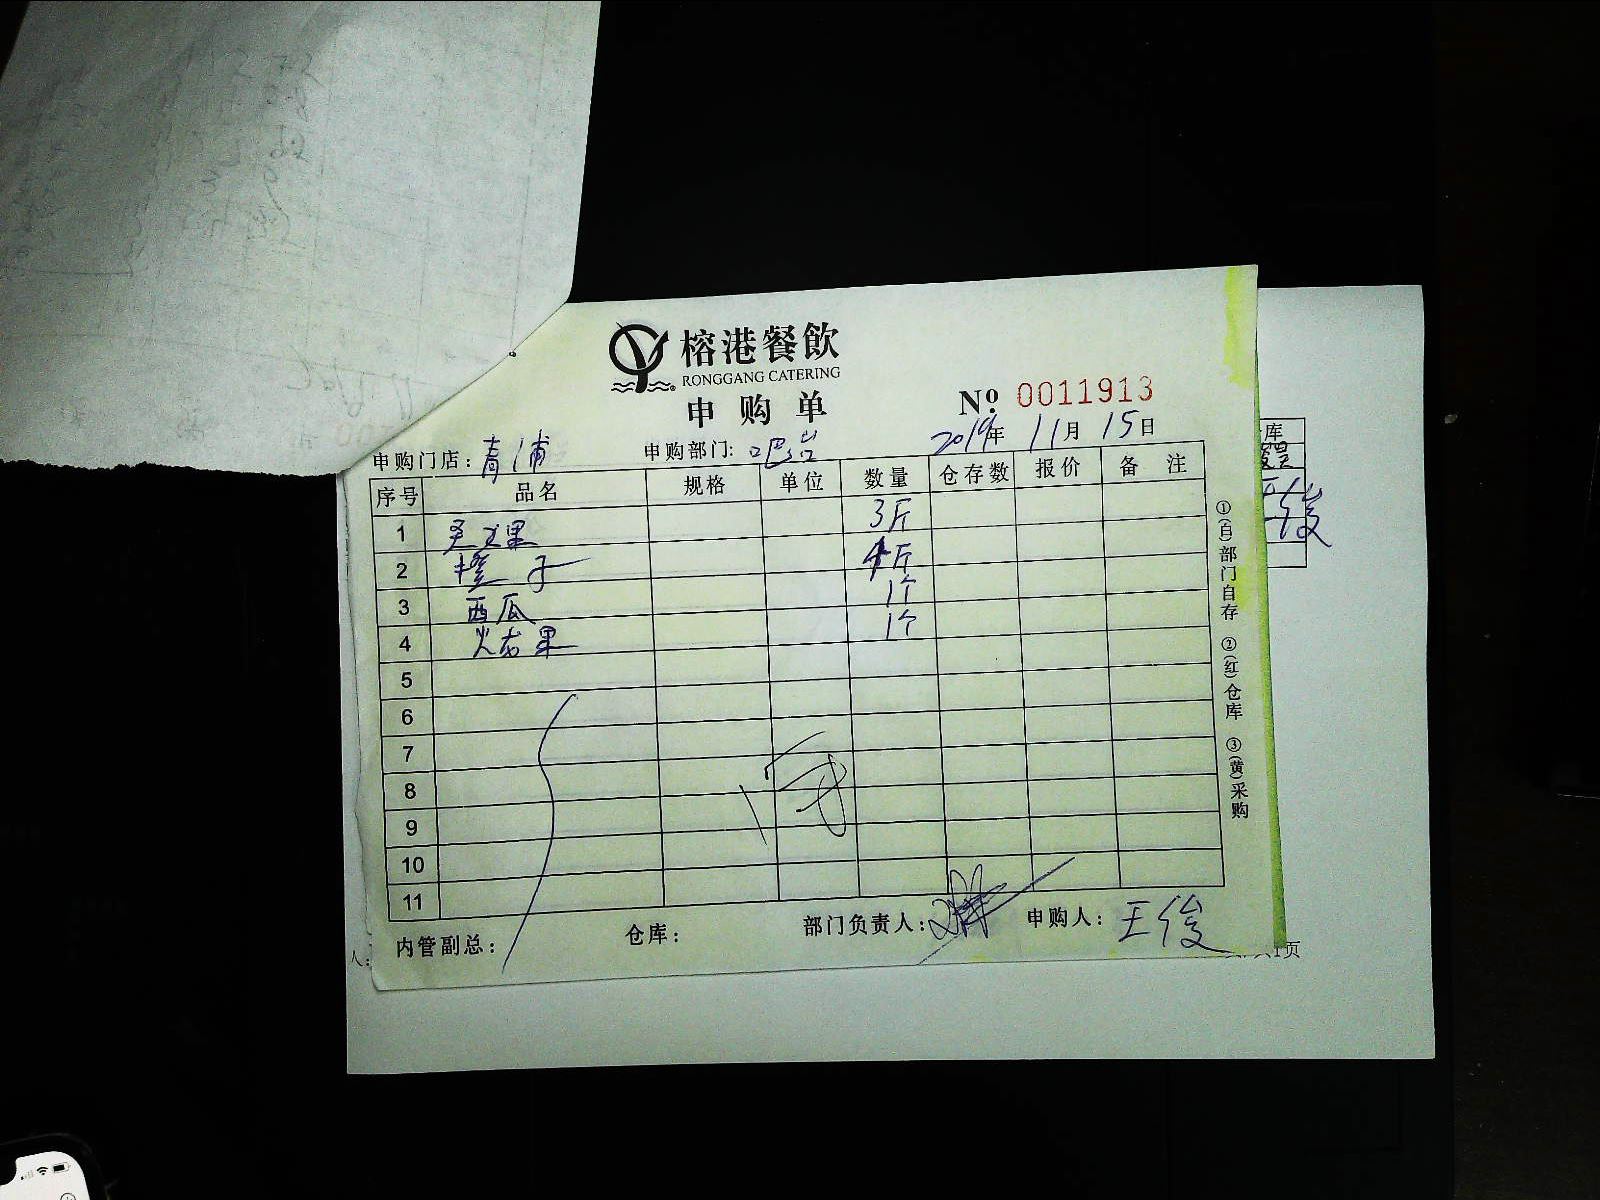 榕港餐飲
RONGGANG CATERING
申购单
Nº. 0011913
申购门店: 青浦 申购部门: 吧台 2019年 11月 15日
序号 品名 规格 单位 数量 仓存数 报价 备注
1 果 3斤
2 橙子 4斤
3 西瓜 1个
4 火龙果 1个
5
6
7
8
9
10
11
内管副总: 仓库: 部门负责人: 申购人: 王俊
①(白)部门自存 ②(红)仓库 ③(黄)采购
库
俊
人:
1页